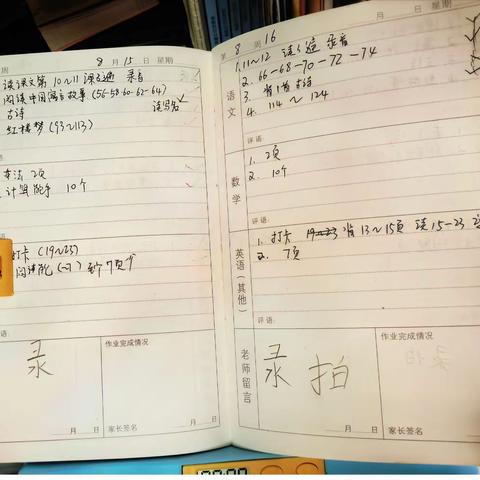 周 8月15日 星期
读课文第10~11课3遍 录音
阅读中国寓言故事(56-58-60-62-64)
古诗 读写名
红楼梦(93~113)
2页
计算能手 10个
打卡(19~23)
7页
评语:
录
作业完成情况
月 日
家长签名
月 日
第8周16 月 日 星期
语文
1. 11~12 读3遍 录音
2. 66-68-70-72-74
3. 背1首古诗
4. 114~124
评语:
数学
1. 2页
2. 10个
评语:
英语(其他)
1. 打卡 19~23 背13~15页 读15-23
2. 7页
评语:
老师留言
录 拍
作业完成情况
月 日
家长签名
月 日